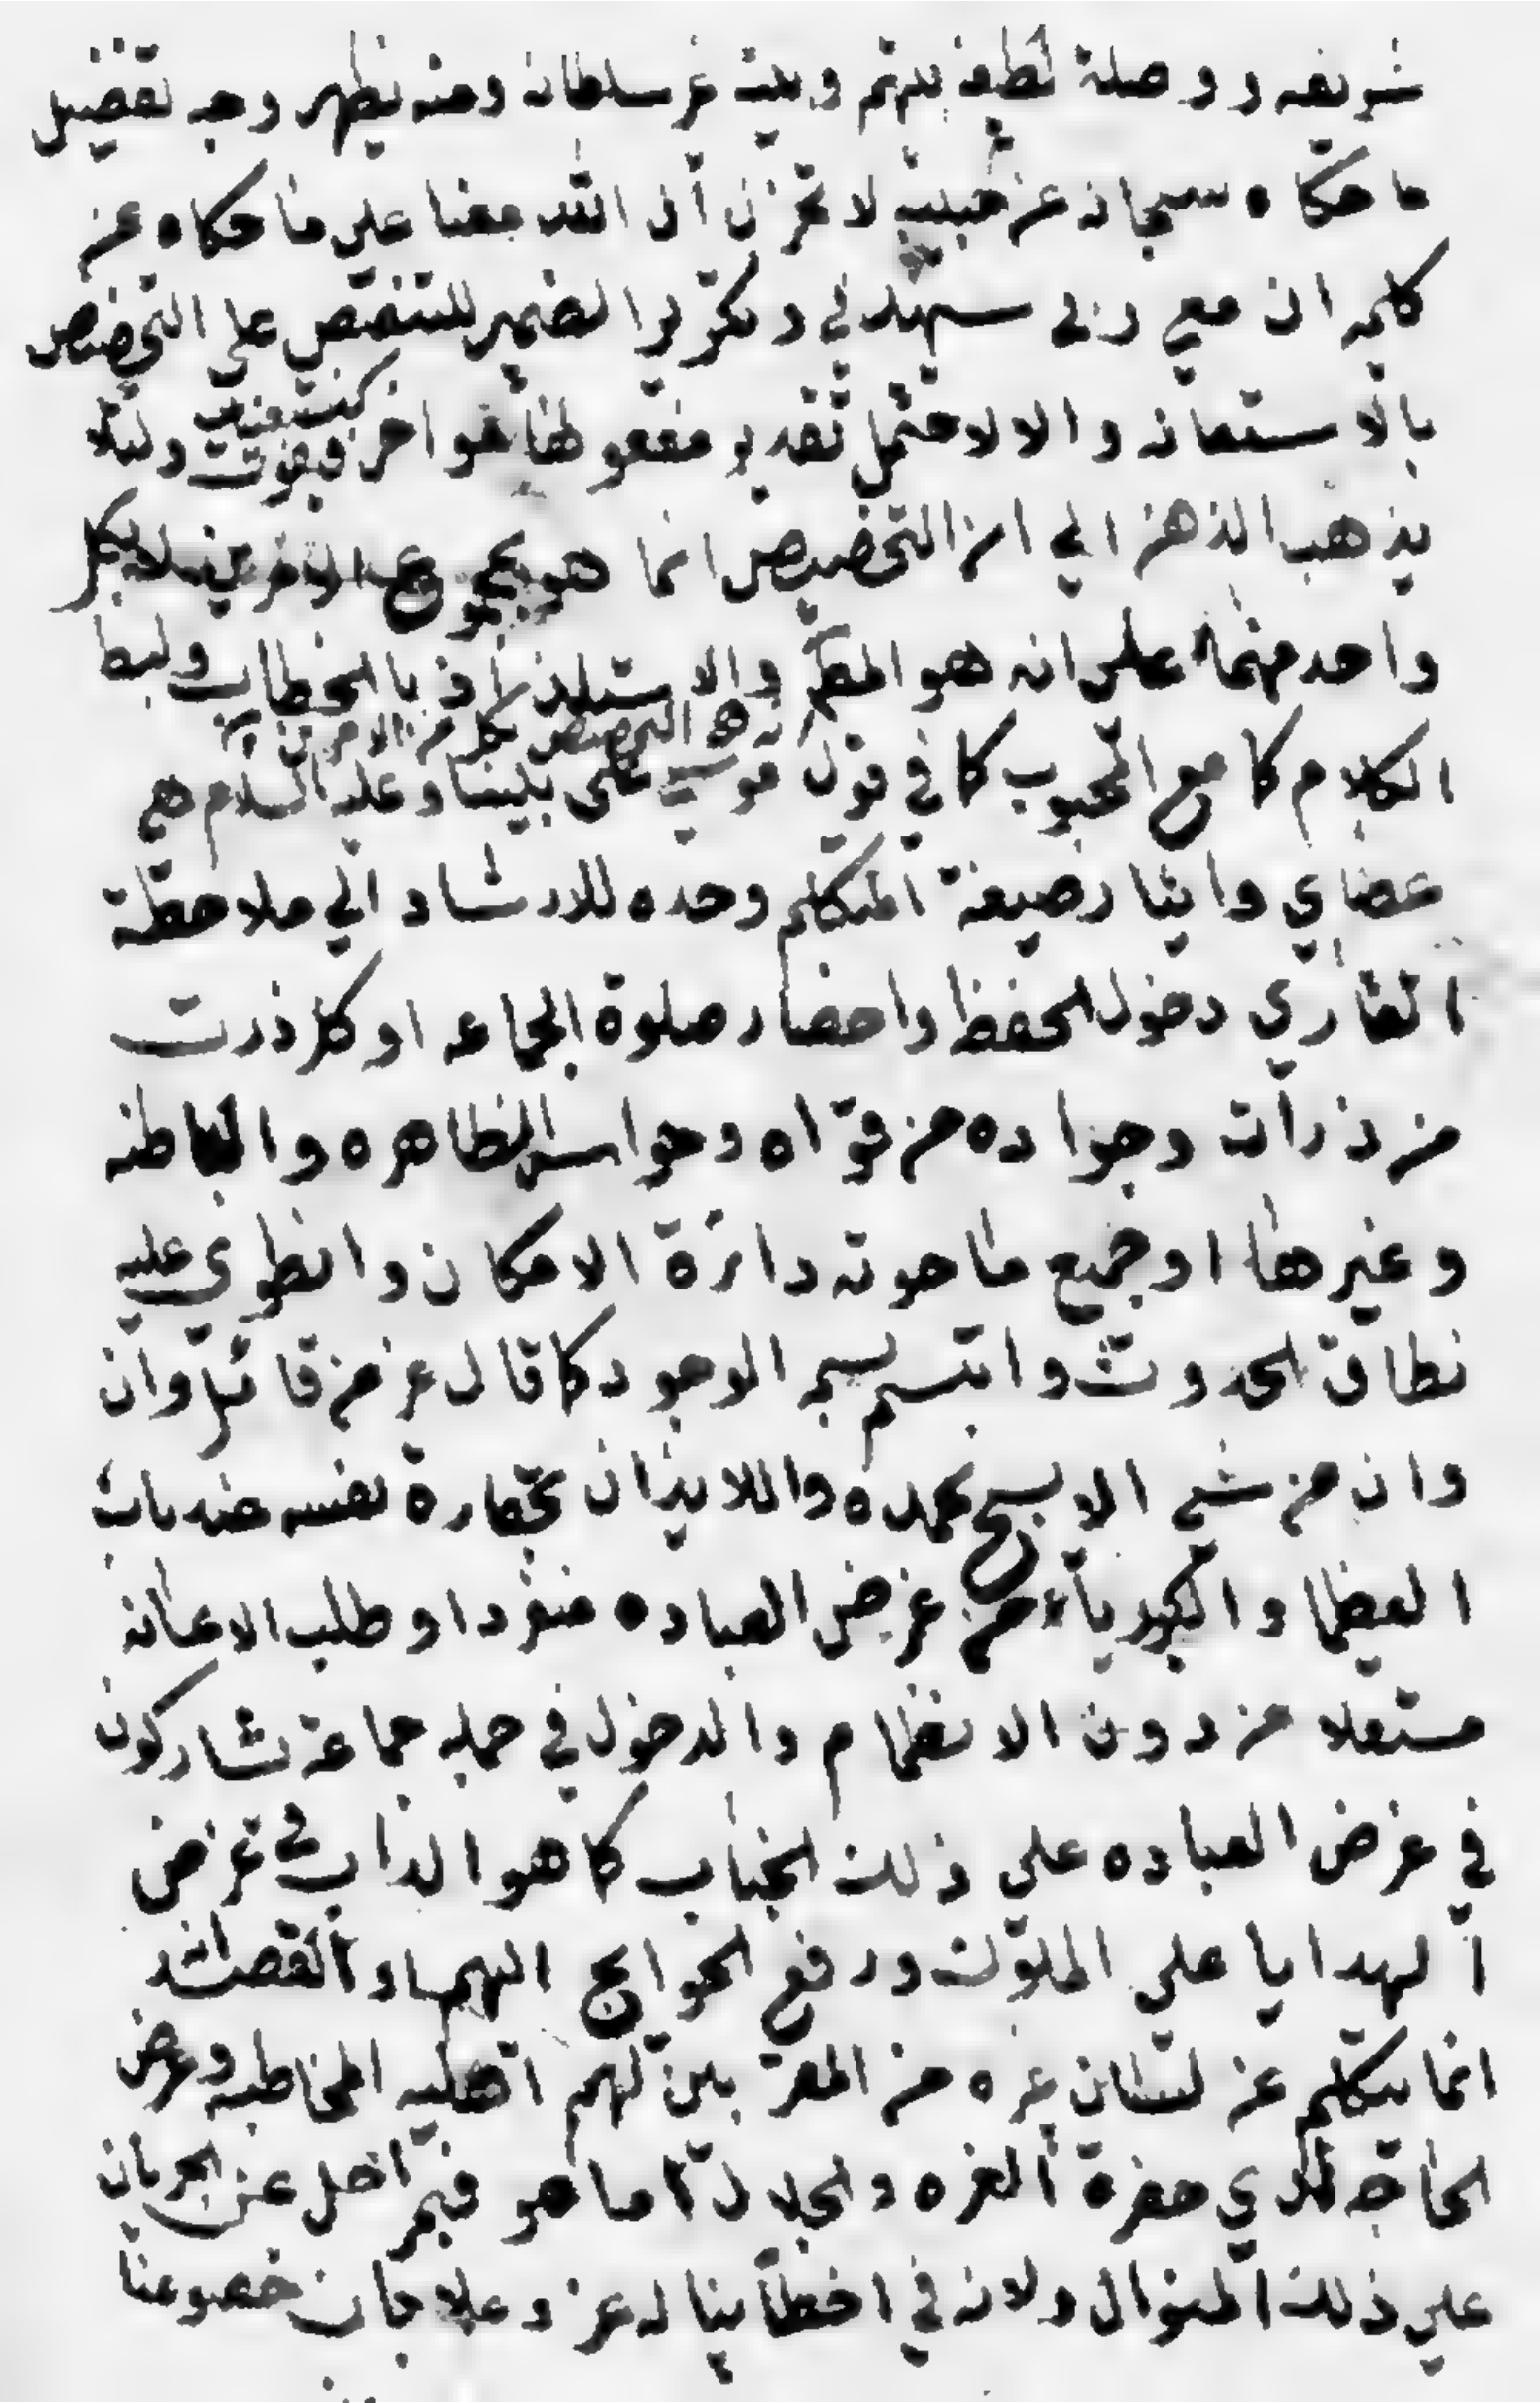 شريفه ووصلة لطيفة بينهم وبينه عز سلطانه ومنه يظهر وجه تفضيل
ما حكاه سبحانه عن حبيبه لا تحزن ان الله معنا على ما حكاه عن
كليمه ان معي ربي سيهدني وتكرير الضمير للتنصيص على التخصيص
بالاستعانه والا لاحتمل تقدير مفعولها مؤاخر فيفوت ولئلا
يذهب الذهن الي ان التخصيص انما هو بمجموع الامرين لا بكل
واحد منهما على انه هو المطلوب والاستلذاذ بالخطاب ولبسط
التخصيص بكل من الامرين
الكلام كما مع المحبوب كما في قول موسى على نبينا وعليه السلام هي
عصاي وايثار صيغة المتكلم وحده للارشاد الي ملاحظة
القاري دخول الحفظ واحضار صلوة الجماعه او كل ذرت
من ذرات وجواده من قواه وحواسه الظاهره والباطنه
وغيرها او جميع ما حوته دائرة الامكان وانطوي عليه
نطاق الحدوث واتسم بسمه الوجود كما قال عز من قائل وان
وان من شيء الا يسبح بحمده واللايذان بحقارة نفسه عند باب
العظما والكبرياء من عرض العباده منفردا وطلب الاعانه
مستقلا من دون الانظمام والدخول في جمله جماعة تشاركون
في عرض العباده على ذلك الجناب كما هو الداب في عرض
الهدايا على الملوك ورفع الحوايج اليهم او القصائد
انما يتكلم عن لسان غيره من المقربين لهم اهليه المخاطبه وعرض
الحاجه لدي حضرة العزه والجلالة اما هو فبمراحل عن الجريان
على ذلك المنوال ولان في خطابنا له عز وعلا بان خضوعنا